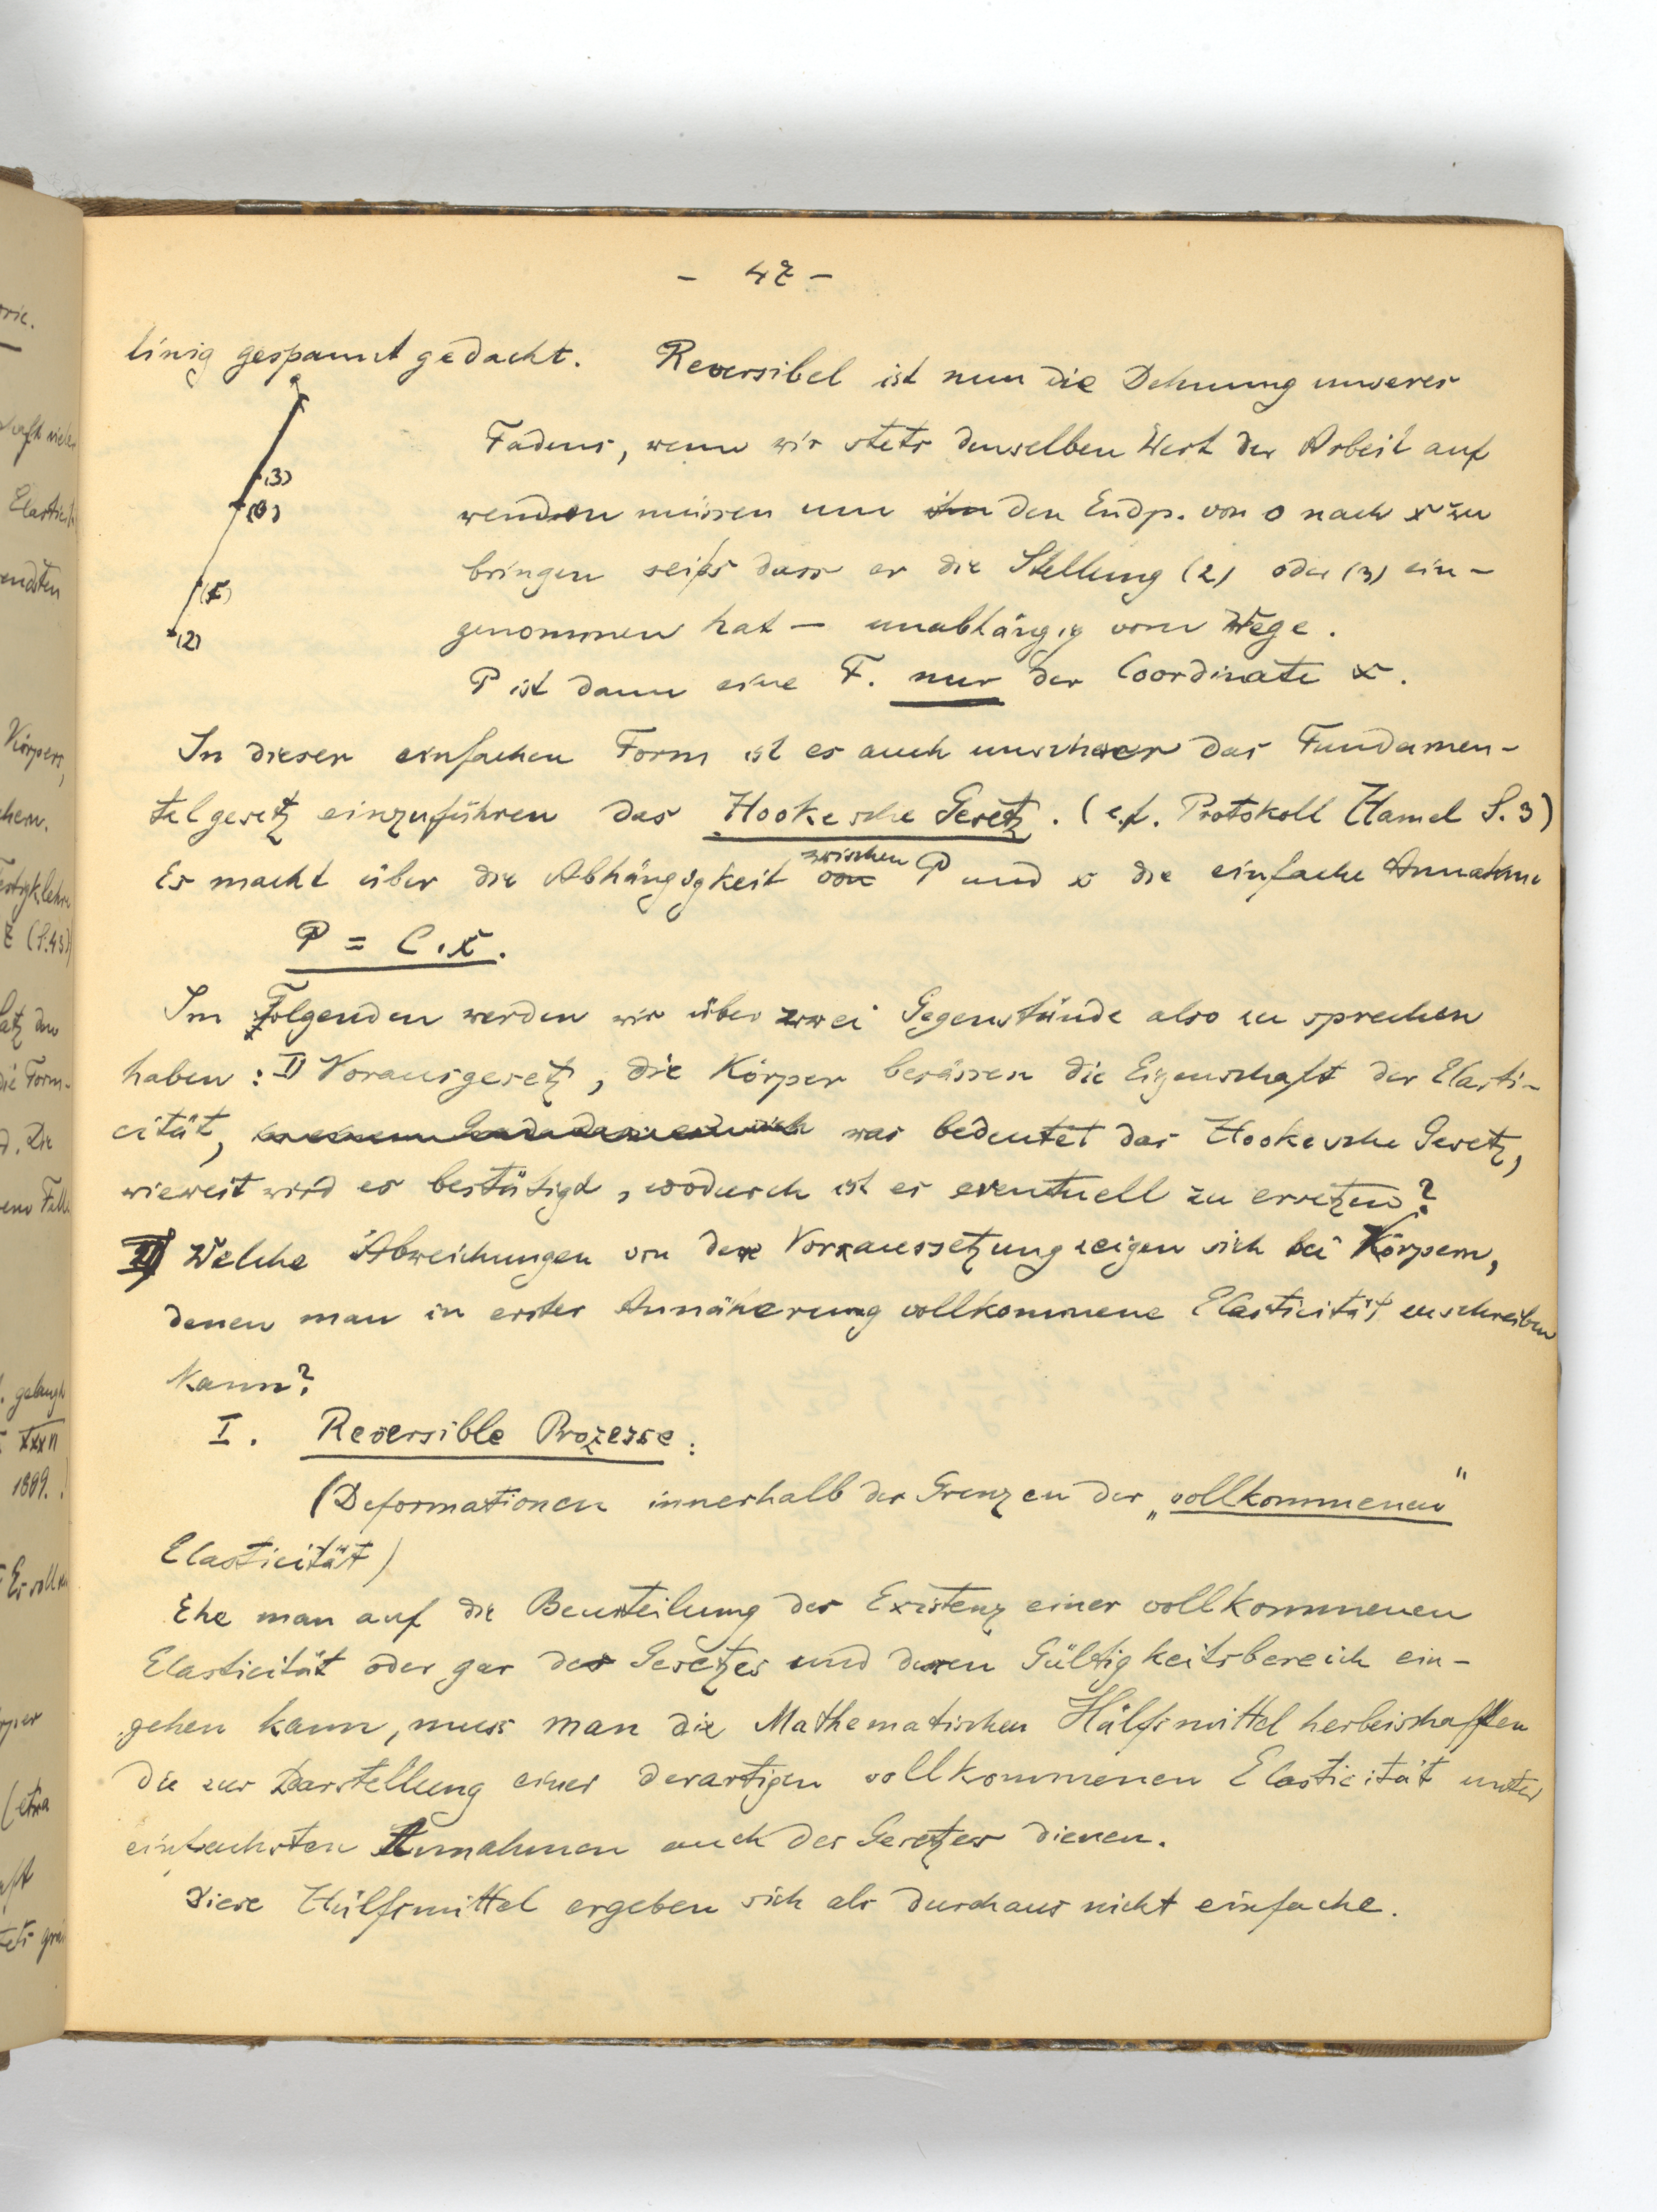 - 47 -
linig gespannt gedacht. Reversibel ist nun die Dehnung unseres
Fadens, wenn wir stets denselben Wert der Arbeit auf
wenden müssen um den Endp. von 0 nach x zu
bringen sei's dass er die Stellung (2) oder (3) ein-
genommen hat — unabhängig vom Wege.
P ist dann eine F. nur der Coordinate x.
(3)
(0)
(x)
(2)
In dieser einfachen Form ist es auch unschwer das Fundamen-
talgesetz einzuführen das Hookesche Gesetz. (cf. Protokoll Hamel S. 3)
Es macht über die Abhängigkeit zwischen P und x die einfache Annahme
P = C.x.
Im Folgenden werden wir über zwei Gegenstände also zu sprechen
haben: I) Vorausgesetzt, die Körper besässen die Eigenschaft der Elasti-
cität, was bedeutet das Hookesche Gesetz,
wieweit wird es bestätigt, wodurch ist es eventuell zu ersetzen?
II) Welche Abweichungen von der Vorraussetzung zeigen sich bei Körpern,
denen man in erster Annäherung vollkommene Elasticität zuschreiben
kann?
I. Reversible Prozesse:
(Deformationen innerhalb der Grenzen der „vollkommenen"
Elasticität)
Ehe man auf die Beurteilung der Existenz einer vollkommenen
Elasticität oder gar des Gesetzes und deren Gültigkeitsbereich ein-
gehen kann, muss man die Mathematischen Hülfsmittel herbeischaffen
die zur Darstellung einer derartigen vollkommenen Elasticität unter
einfachsten Annahmen auch des Gesetzes dienen.
Diese Hülfsmittel ergeben sich als durchaus nicht einfache.